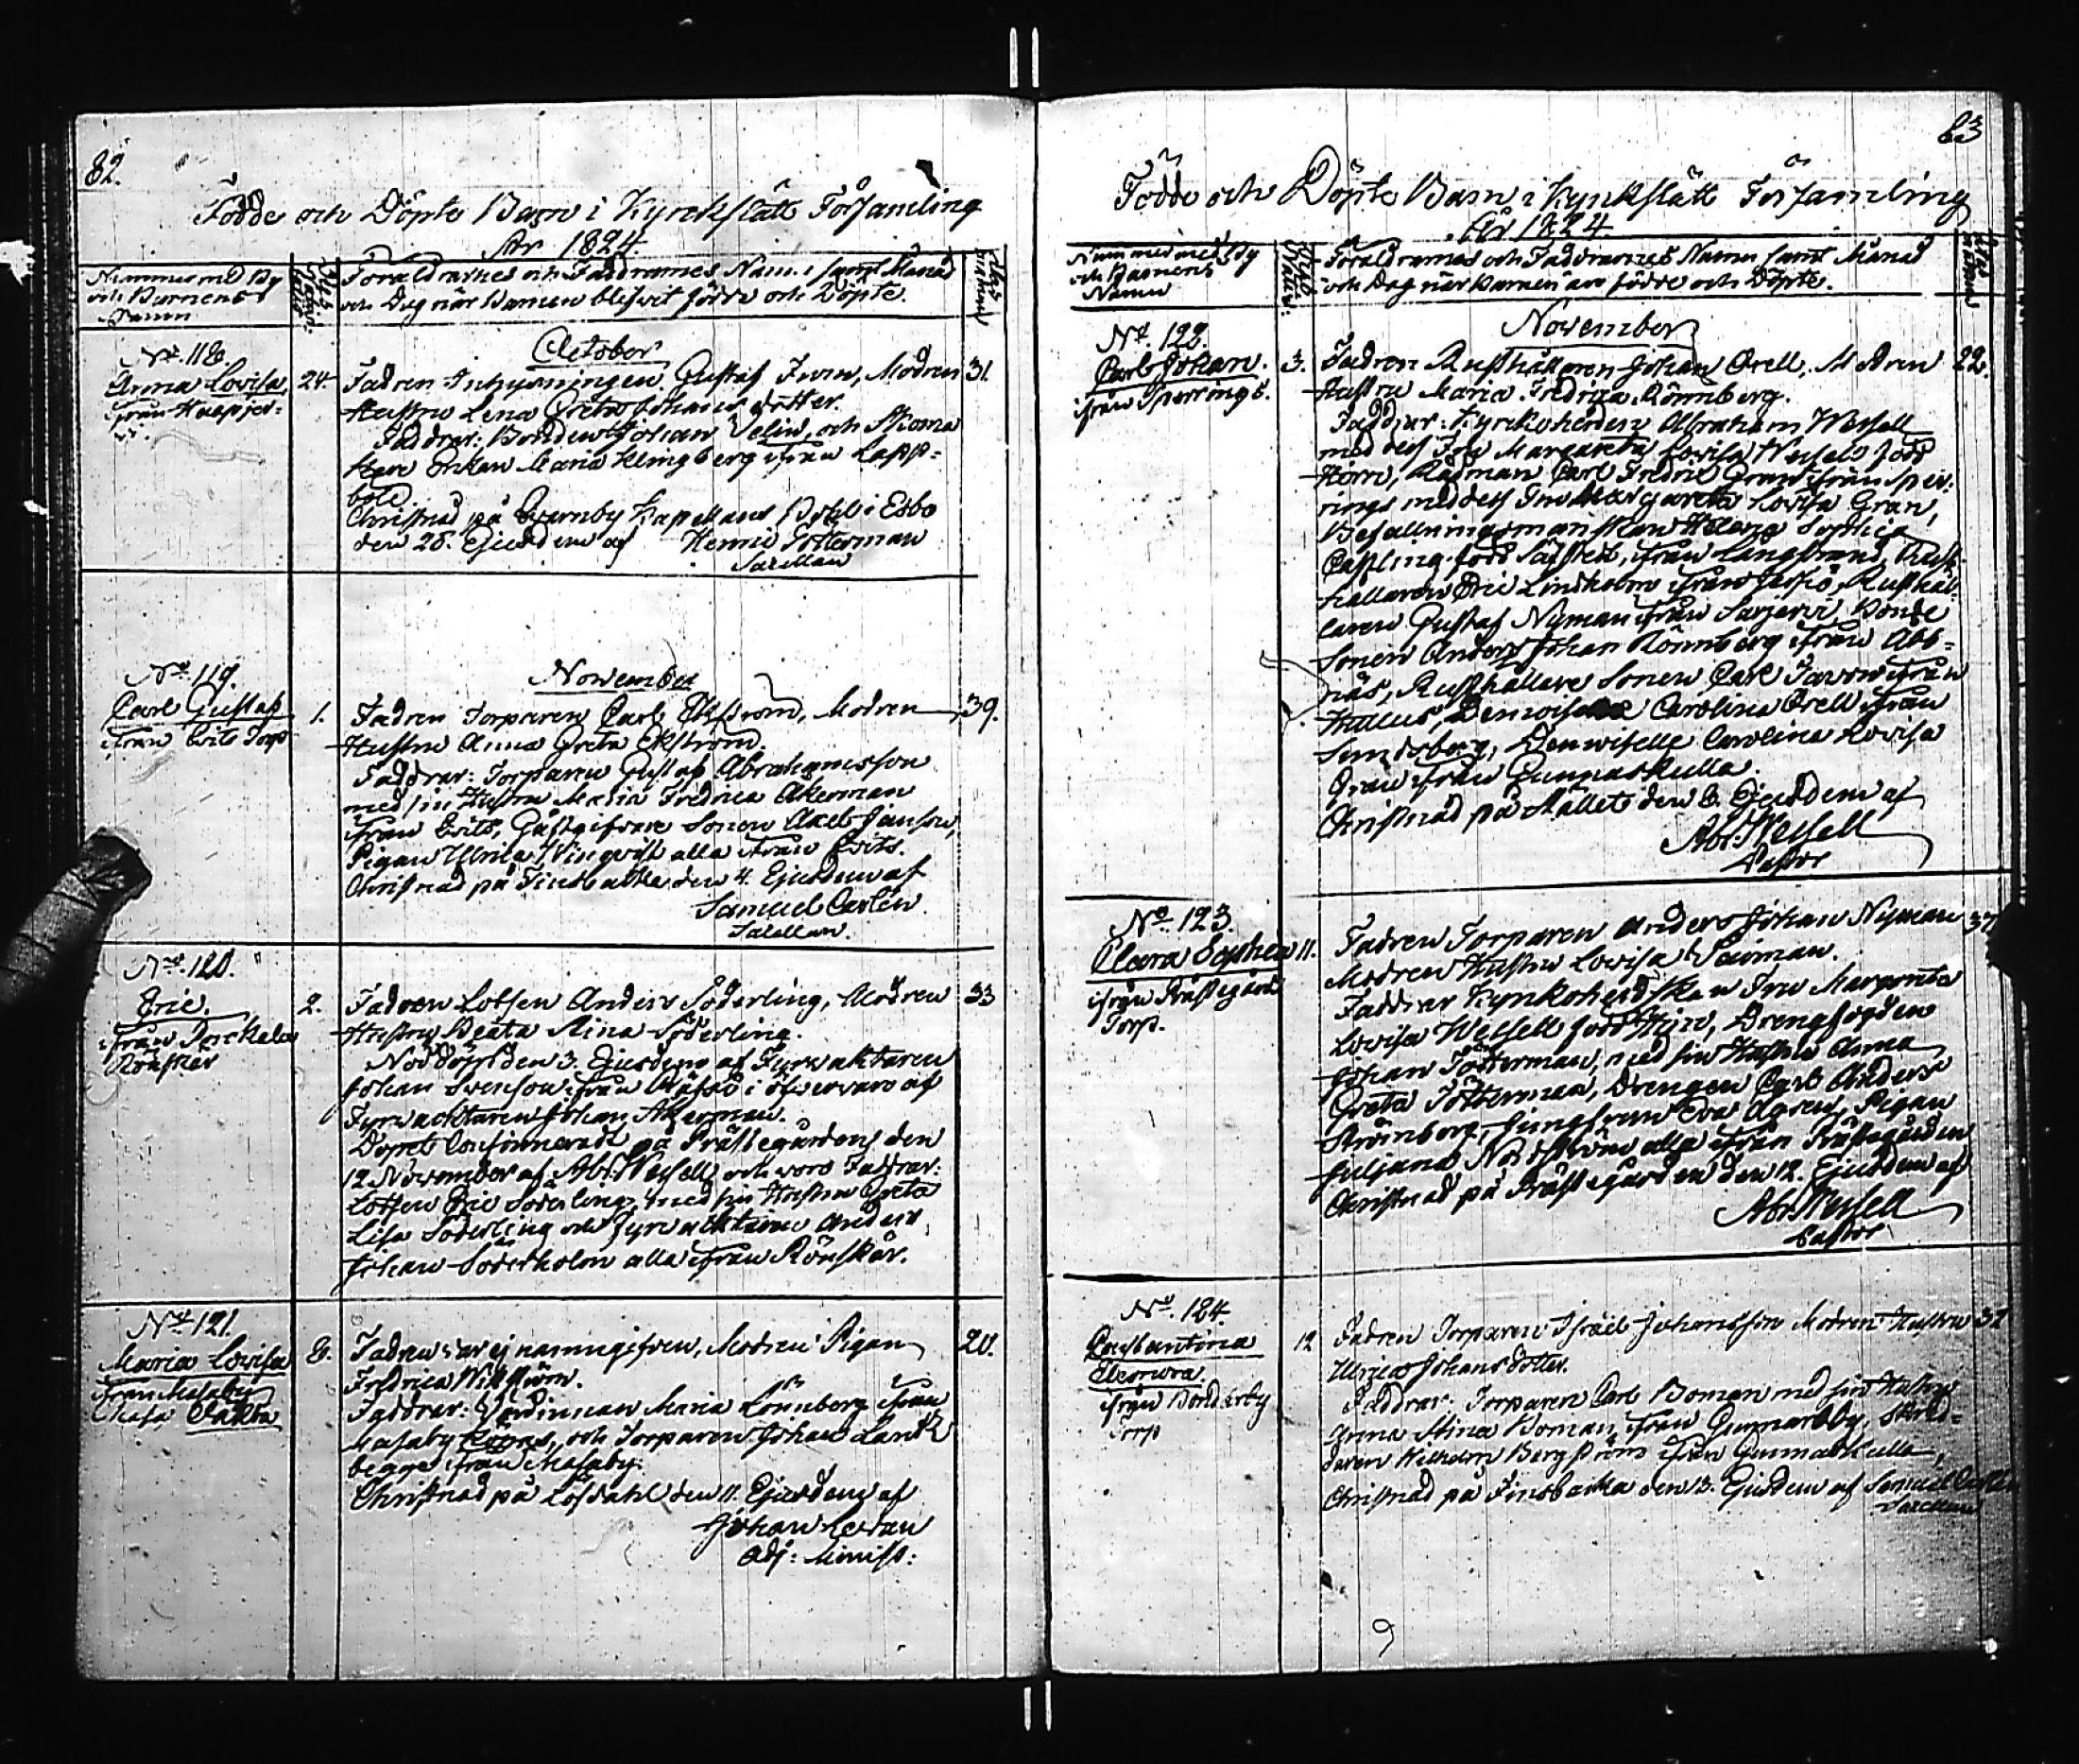 82.
Födde och Döpte Barn i Kyrckslätt Församling
År 1824.
Nummer med By
och Barnens
Namn
Föräldrarnes och Faddrarnes Namn, samt Månad
och Dag när Barnen blifvit födde och Döpte.
October
No. 118.
Anna Lovisa
ifrån
24
Fadren Inhysningen Gustaf Modren
31.
Hustru Lena Greta Johans dotter.
Faddrar: Bonden Johan Velin, och Skoma
kare Enkan Maria Klingberg ifrån Lapp=
böle
Christnad på Qvarnby Kapellans Bohl i Esbo
den 28. Ejusdem af Henric Totterman
Sacellan
November
No. 119.
Carl Gustaf
ifrån Evits Torp
1.
Fadren Torparen Carl Ekström, Modren
39.
Hustru Anna Greta Ekström.
Faddrar: Torparen Gustaf Abrahamsson
med sin Hustru Maria Fredrica Åkerman
ifrån Evits, Gästgifvare Sonen Axel Janson,
Pigan Ulrica Winqvist alla ifrån Evits.
Christnad på Finsbacka den 4. Ejusdem af
Samuel Carlén
Sacellan.
No. 120.
Eric.
ifrån Porckala
Rönskär
2.
Fadren Lotsen Anders Söderling, Modren
33
Hustru Beata Stina Söderling.
Nöddöpt den 3. Ejusdem af Fyrvaktaren
Johan Svenson ifrån i öfvervaro af
Fyrvacktaren Johan Åkerman.
Dopets Confirmeradt på Prästegården den
12 November af Abr. Wessell, och voro Faddrar:
Lotsen Eric Söderling, med sin Hustru Greta
Lisa Söderling och Fyrvacktaren Anders
Johan Söderholm alla ifrån Rönskär.
No. 121.
Maria Lovisa
ifrån Masaby
8.
Fadren var ej namngifven, Modren Pigan
20.
Fredrica Wikström.
Faddrar: Maria Lönnberg ifrån
Masaby och Torparen Johan
begge ifrån Masaby.
Christnad på Löfdahl den 11. Ejusdem af
Johan
Adj: Minist:
83
Födde och Döpte Barn i Kyrckslätt Församling
År 1824
Nummer med By
och Barnens
Namn
Föräldrarnes och Faddrarnes Namn samt Månad
och Dag när Barnen äro födde och Döpte.
November
No. 122.
Carl Johan.
ifrån Sperrings.
3.
Fadren Rusthållaren Johan Orell, Modren
22.
Hustru Maria Fredrica Rönnberg.
Faddrar: Kyrckoherden Abraham Wessell
med dess Fru Margareta Lovisa Wessell född
Hörn, Rådman Carl Fredric Gran ifrån Sper-
rings med dess Fru Margareta Lovisa Gran,
Befallningsmanskan Helena Sophia
född ifrån Långstrand, Rust-
hållaren Eric Lindholm ifrån Rusthål-
laren Gustaf Nyman ifrån Sarjervi, Bonde
Sonen Anders Johan Rönnberg ifrån Obb=
näs, Rusthållare Sonen Carl ifrån
Demoiselle Carolina Orell ifrån
Sundsberg, Demoiselle Carolina Lovisa
Gran ifrån Gunnarskulla.
Christnad på Stället den 8. Ejusdem af
Abr. Wessell
Pastor
No. 123.
Clara Sophia
ifrån Prästegårds
Torp.
11.
Fadren Torparen Anders Johan Nyman
37
Modren Hustru Lovisa
Faddrar Kyrkoherdskan Fru Margareta
Lovisa Wessell född Hörn, Drengfogden
Johan Totterman, med sin Hustru Anna
Greta Totterman, Drengen Carl Anders
Strömberg, Jungfrun Eva Pigan
Juliana Nordström alla ifrån Prästegården
Christnad på Prästegården den 12. Ejusdem af
Abr. Wessell
Pastor
No. 124.
Constantina
Eleonora.
ifrån Bonderby
Torp
12
Fadren Torparen Israel Johansson Modren Hustru
Ulrica Johans dotter.
Faddrar: Torparen Carl Boman med sin Hustru
Anna Stina Boman, ifrån Gunnarsby, Skräd=
daren Wilhelm Bergström ifrån Gunnarskulla,
Christnad på Finsbacka den 13. Ejusdem af Samuel Carlén
Sacellan
9